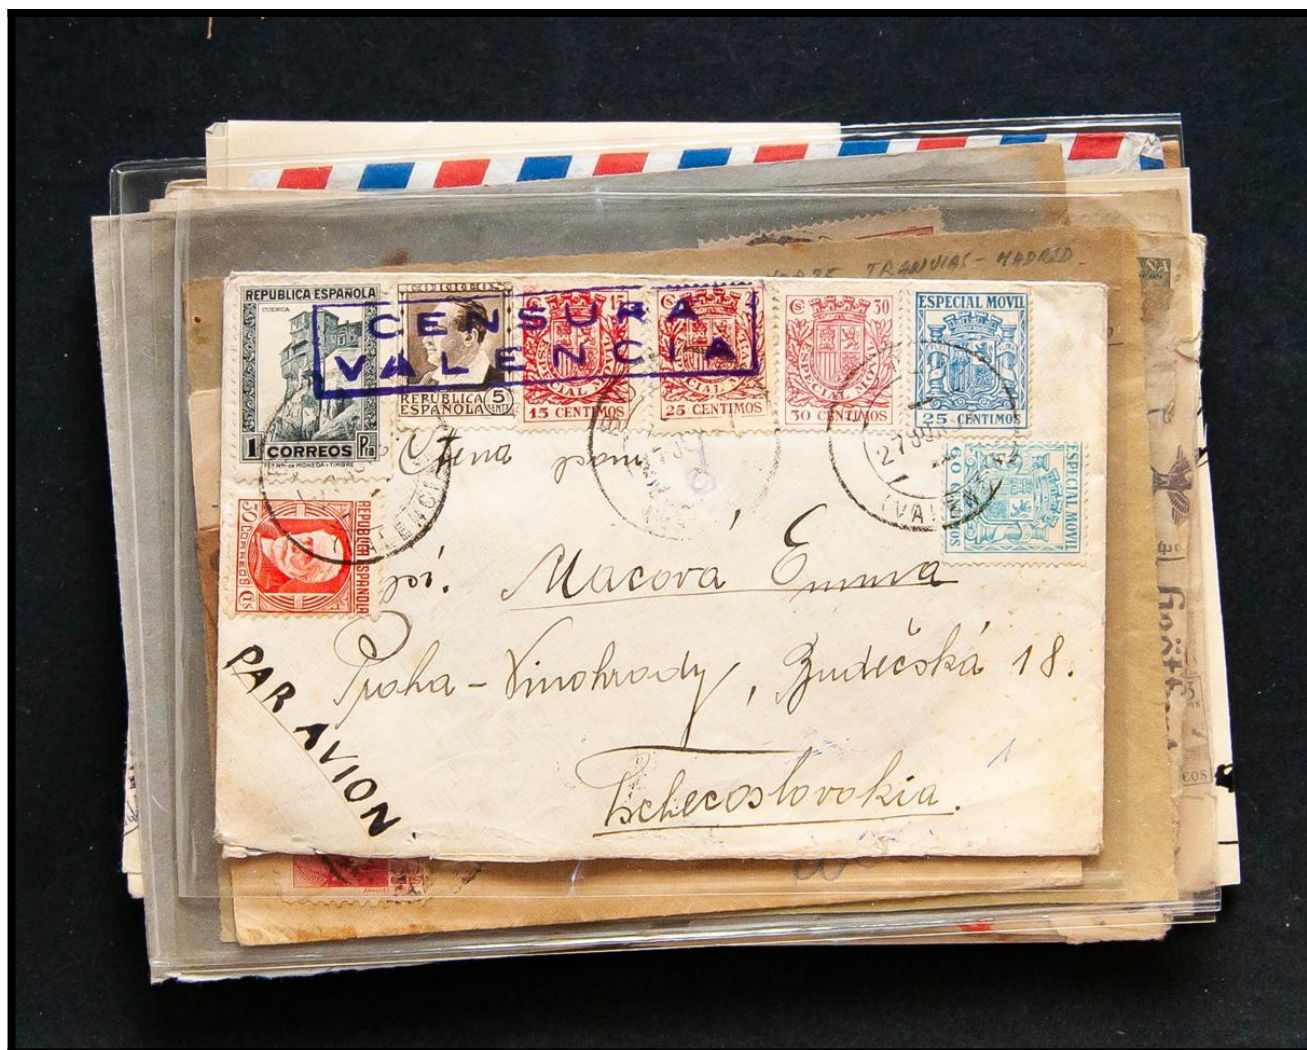 TRANVIAS - MADRID.
REPUBLICA ESPAÑOLA
CUENCA
1 CORREOS Pta
CORREOS
REPUBLICA
ESPAÑOLA 5 CENTS
CENSURA
VALENCIA
Cs 15
ESPECIAL MOVIL
15 CENTIMOS
25
ESPECIAL MOVIL
25 CENTIMOS
Cs 30
ESPECIAL MOVIL
30 CENTIMOS
ESPECIAL MOVIL
25 CENTIMOS
ESPECIAL MOVIL
60 CENTIMOS
REPUBLICA ESPAÑOLA
50 CORREOS Cts
VALENCIA
27 JUN
(VALENCIA)
Ctená paní
pí. Macová Emma
Praha - Vinohrady, 18.
Tschecoslovakia.
PAR AVION.